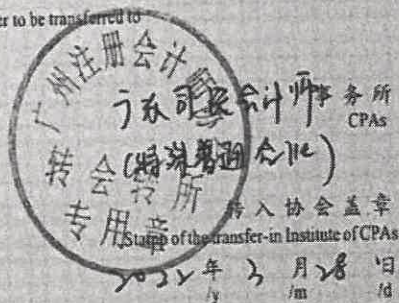 er to be transferred to
广州注册会计师
广东司农会计师事务所
CPAs
(特殊普通合伙)
转会转所
专用章
转入协会盖章
Stamp of the transfer-in Institute of CPAs
2022年3月28日
/y /m /d